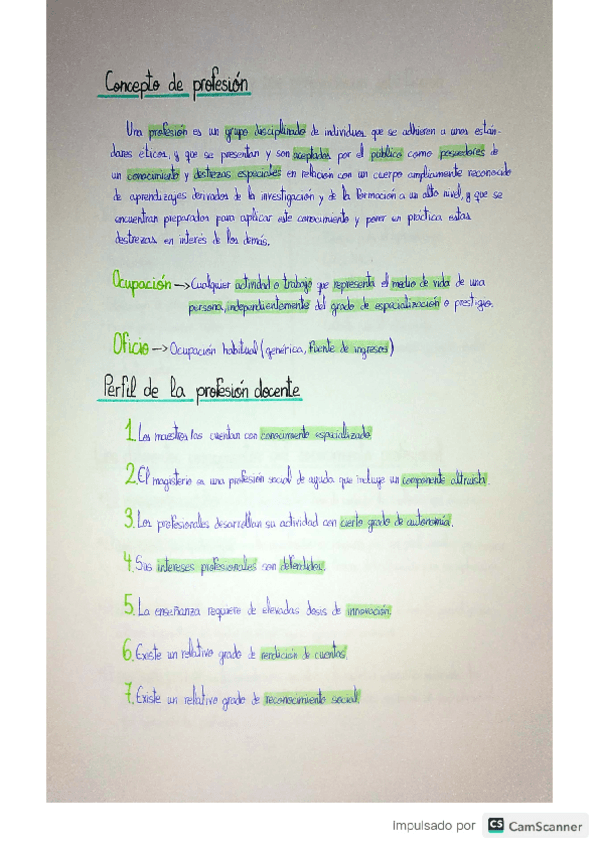 Concepto de profesión
Una profesión es un grupo disciplinado de individuos que se adhieren a unos están-
dares éticos, y que se presentan y son aceptados por el público como poseedores de
un conocimiento y destrezas especiales en relación con un cuerpo ampliamente reconocido
de aprendizajes derivados de la investigación y de la formación a un alto nivel, y que se
encuentran preparados para aplicar este conocimiento y poner en practica estas
destrezas en interés de los demás.
Ocupación → Cualquier actividad o trabajo que representa el medio de vida de una
persona, independientemente del grado de especialización o prestigio.
Oficio → Ocupación habitual (genérica, fuente de ingresos)
Perfil de la profesión docente
1. Los maestros/as cuentan con conocimiento especializado
2. El magisterio es una profesión social de ayuda que incluye un componente altruista.
3. Los profesionales desarrollan su actividad con cierto grado de autonomía.
4. Sus intereses profesionales son defendidos.
5. La enseñanza requiere de elevadas dosis de innovación.
6. Existe un relativo grado de rendición de cuentas.
7. Existe un relativo grado de reconocimiento social.
Impulsado por CS CamScanner